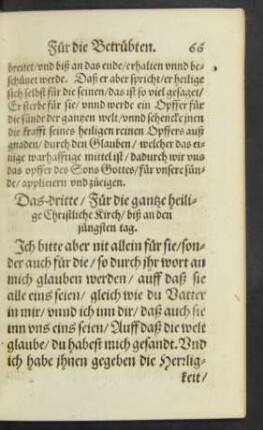 Für die Betrübten. 66
breitet/vnd biß an das ende/erhalten vnnd be-
schützet werde. Daß er aber spricht/er heilige
sich selbst für die seinen/das ist so viel gesaget/
Er sterbe für sie/vnnd werde ein Opffer für
die sünde der gantzen welt/vnnd schencke jnen
die krafft seines heiligen reinen Opffers auß
gnaden/durch den Glauben/welcher das ei-
nige warhafftige mittel ist/dadurch wir vns
das opffer des Sons Gottes/für vnsere sün-
de/appliciern vnd zueigen.
Das dritte/Für die gantze heili-
ge Christliche Kirch/biß an den
jüngsten tag.
Ich bitte aber nit allein für sie/son-
der auch für die/so durch jhr wort an
mich glauben werden/auff daß sie
alle eins seien/gleich wie du Vatter
in mir/vnnd ich inn dir/daß auch sie
inn vns eins seien/Auff daß die welt
glaube/du habest mich gesandt. Vnd
ich habe jhnen gegeben die Herrlig-
keit/